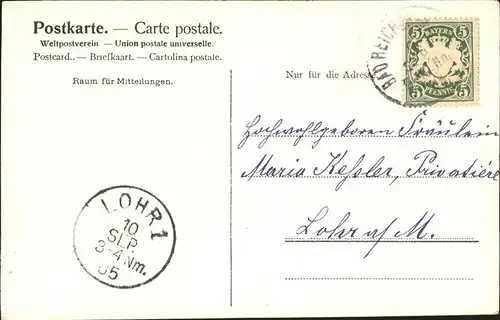 Postkarte. — Carte postale.
Weltpostverein. — Union postale universelle.
Postcard.. — Briefkaart. — Cartolina postale.
Raum für Mitteilungen.
Nur für die Adresse
BAD REICH
BAYERN
5 5
5 5
PFENNIG
Hochwohlgeboren Fräulein
Maria Keßler, Privatiére
Lohr a/M.
LOHR 1
10
SEP.
3-4 Nm.
05